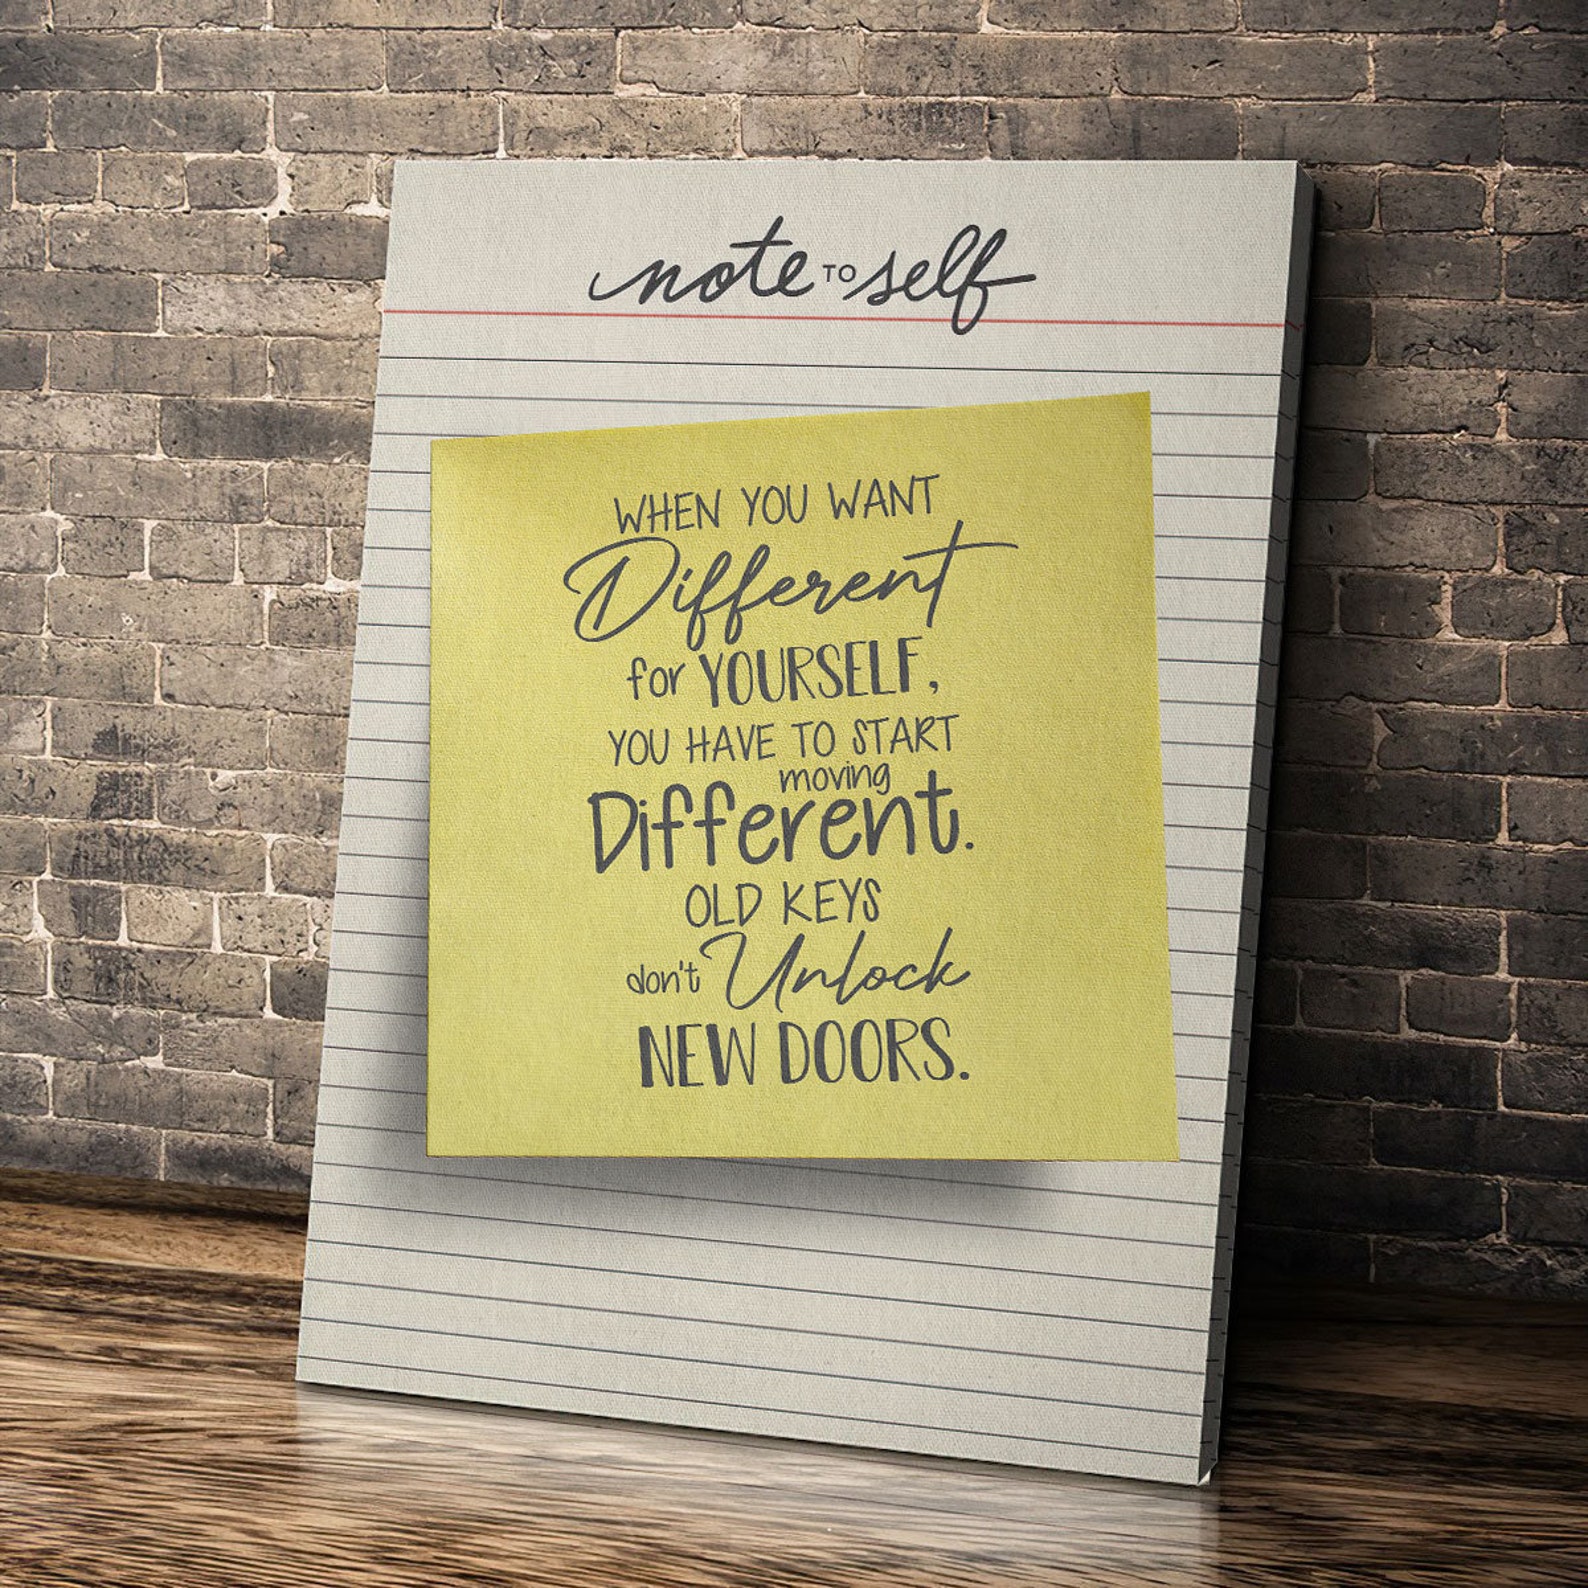 note TO self
WHEN YOU WANT
Different
for YOURSELF,
YOU HAVE TO START
moving
Different.
OLD KEYS
don't Unlock
NEW DOORS.